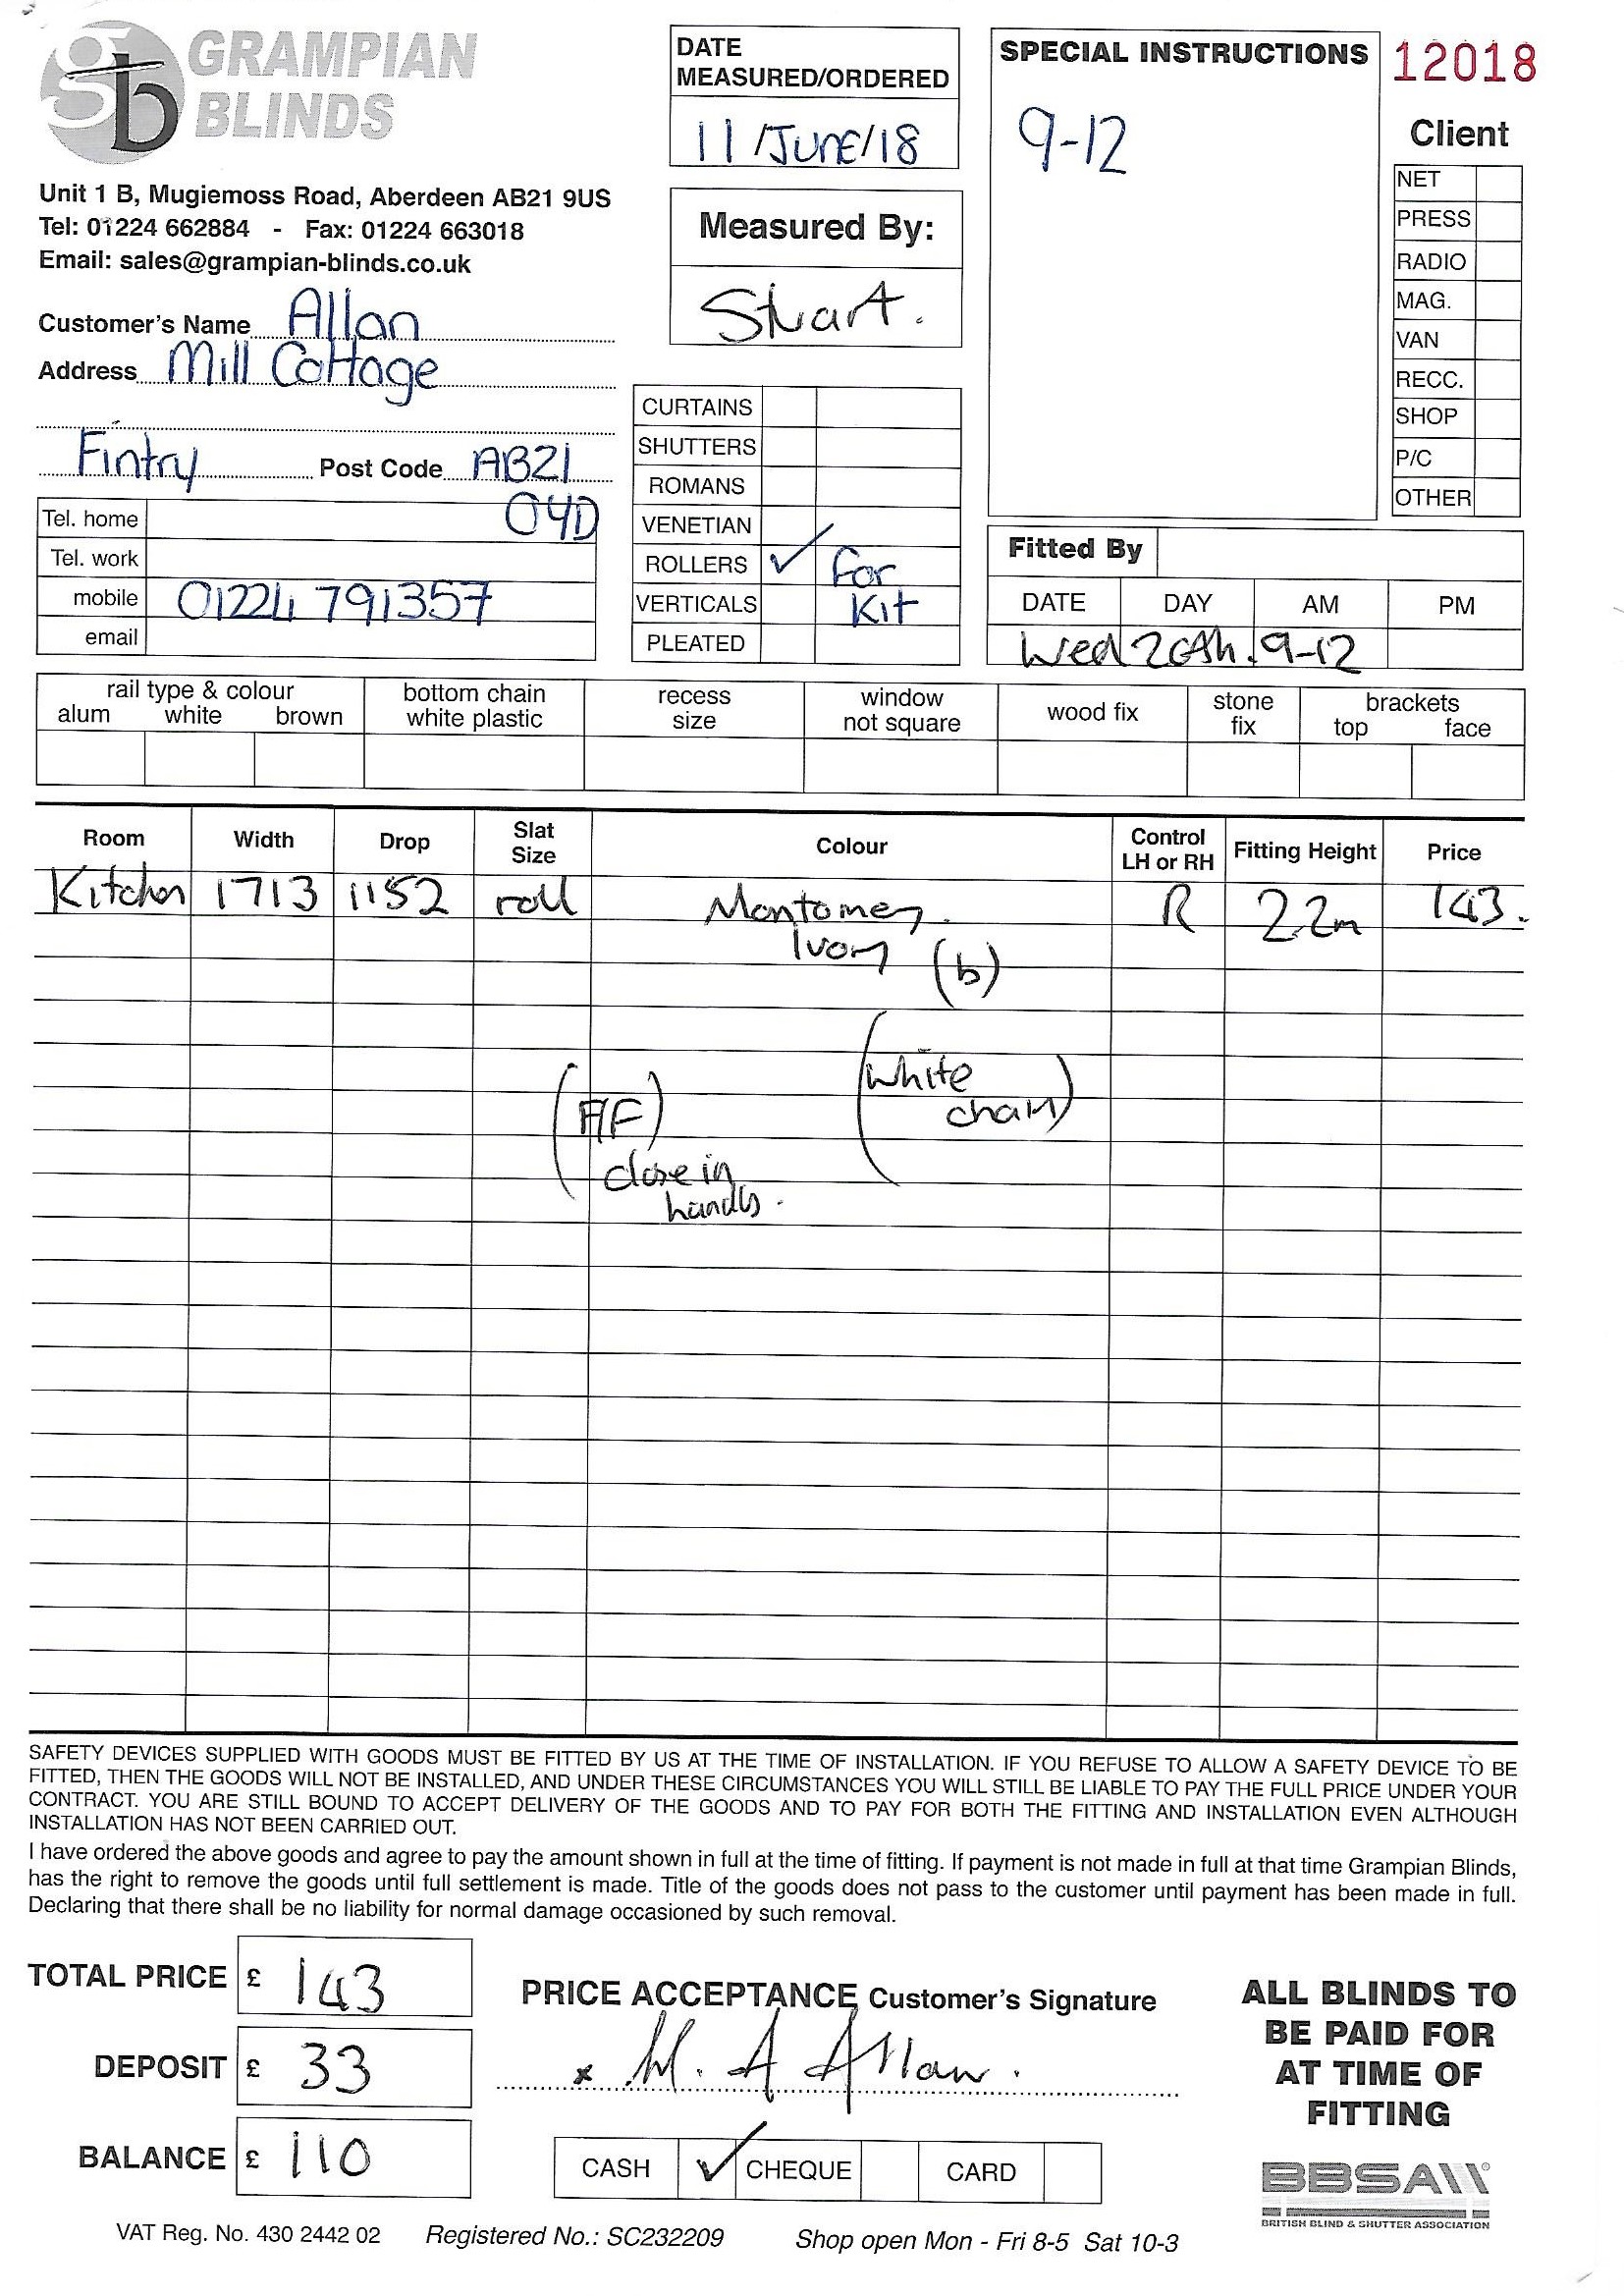 gb GRAMPIAN
BLINDS
Unit 1 B, Mugiemoss Road, Aberdeen AB21 9US
Tel: 01224 662884 - Fax: 01224 663018
Email: sales@grampian-blinds.co.uk
Customer's Name Allan
Address Mill Cottage
Fintry Post Code AB21
0YD
Tel. home
Tel. work
mobile 01224 791357
email
DATE
MEASURED/ORDERED
11/JUNE/18
Measured By:
Stuart.
CURTAINS
SHUTTERS
ROMANS
VENETIAN
ROLLERS ✓ for
VERTICALS Kit
PLEATED
SPECIAL INSTRUCTIONS
9-12
12018
Client
NET
PRESS
RADIO
MAG.
VAN
RECC.
SHOP
P/C
OTHER
Fitted By
DATE DAY AM PM
Wed 20th. 9-12
rail type & colour
alum white brown
bottom chain
white plastic
recess
size
window
not square
wood fix
stone
fix
brackets
top face
Room Width Drop Slat Size Colour Control LH or RH Fitting Height Price
Kitchen 1713 1152 roll R 2.2m 143.
Ivory (b)
(white
chain)
(F/F)
close in
hands.
SAFETY DEVICES SUPPLIED WITH GOODS MUST BE FITTED BY US AT THE TIME OF INSTALLATION. IF YOU REFUSE TO ALLOW A SAFETY DEVICE TO BE
FITTED, THEN THE GOODS WILL NOT BE INSTALLED, AND UNDER THESE CIRCUMSTANCES YOU WILL STILL BE LIABLE TO PAY THE FULL PRICE UNDER YOUR
CONTRACT. YOU ARE STILL BOUND TO ACCEPT DELIVERY OF THE GOODS AND TO PAY FOR BOTH THE FITTING AND INSTALLATION EVEN ALTHOUGH
INSTALLATION HAS NOT BEEN CARRIED OUT.
I have ordered the above goods and agree to pay the amount shown in full at the time of fitting. If payment is not made in full at that time Grampian Blinds,
has the right to remove the goods until full settlement is made. Title of the goods does not pass to the customer until payment has been made in full.
Declaring that there shall be no liability for normal damage occasioned by such removal.
TOTAL PRICE £ 143
DEPOSIT £ 33
BALANCE £ 110
PRICE ACCEPTANCE Customer's Signature
x M. A Allan.
CASH ✓ CHEQUE CARD
ALL BLINDS TO
BE PAID FOR
AT TIME OF
FITTING
BBSA
BRITISH BLIND & SHUTTER ASSOCIATION
VAT Reg. No. 430 2442 02 Registered No.: SC232209 Shop open Mon - Fri 8-5 Sat 10-3